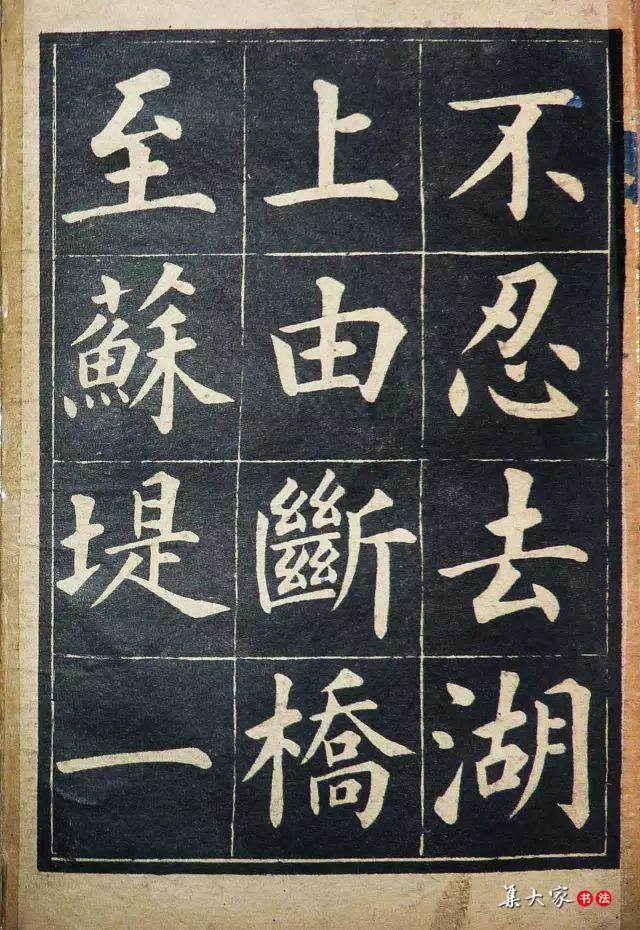 不忍去湖
上由斷橋
至蘇堤一
集大家书法